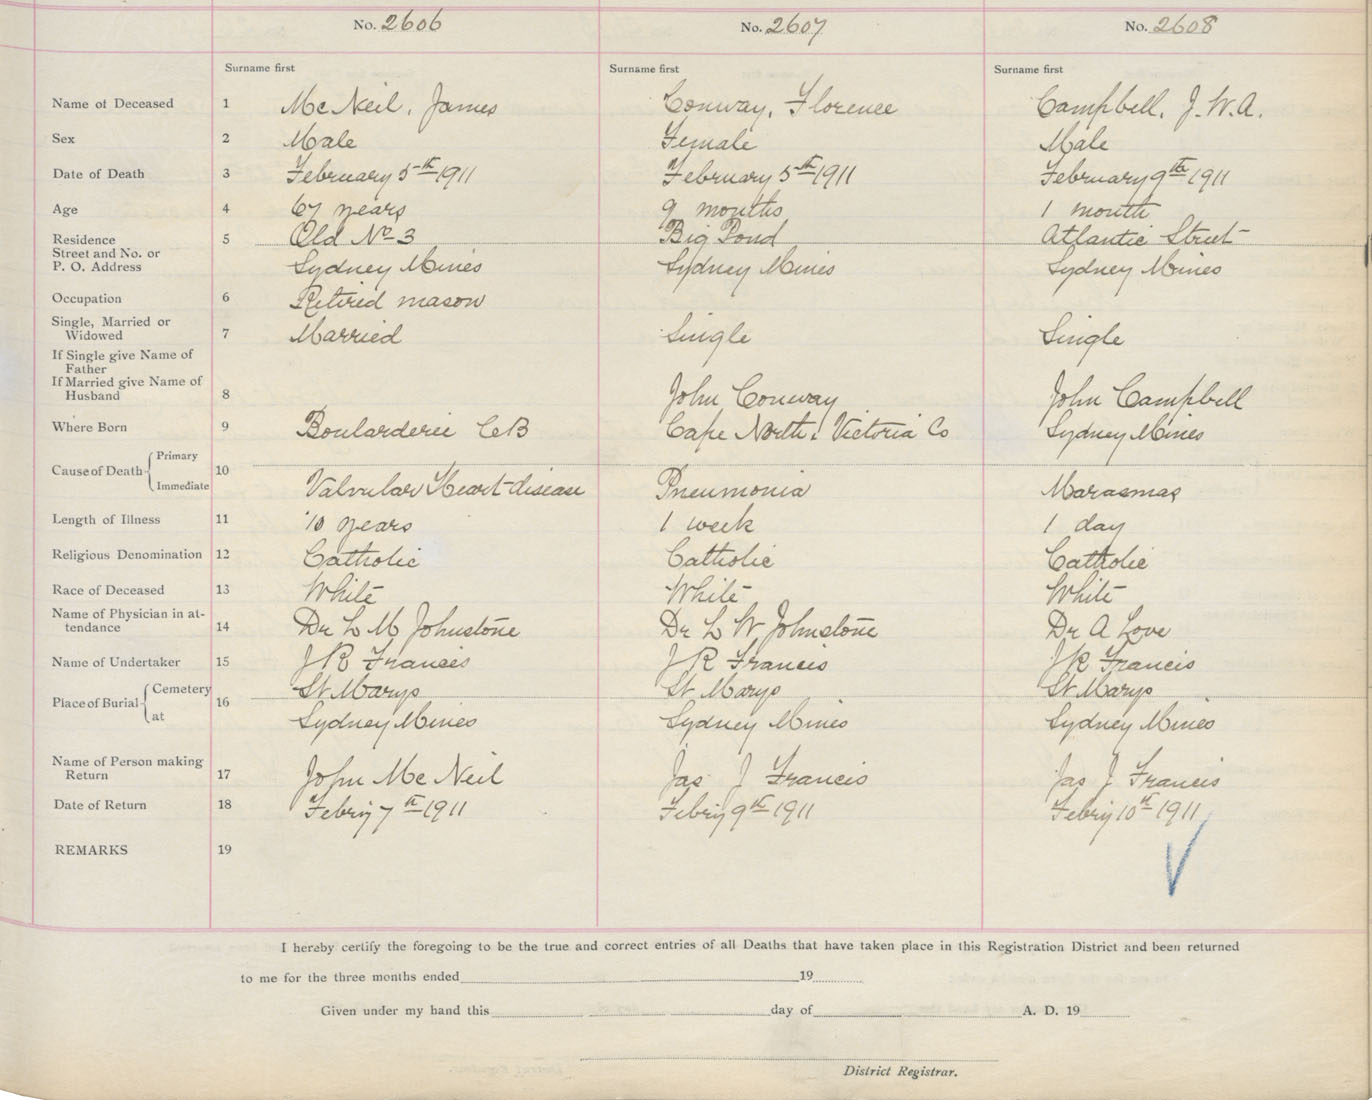 No. 2606 No. 2607 No. 2608
Surname first Surname first Surname first
Name of Deceased 1 McNeil, James Conway, Florence Campbell, J. W. A.
Sex 2 Male Female Male
Date of Death 3 February 5th 1911 February 5th 1911 February 9th 1911
Age 4 67 years 9 months 1 month
Residence 5 Old No 3 Big Pond Atlantic Street
Street and No. or
P. O. Address Sydney Mines Sydney Mines Sydney Mines
Occupation 6 Retired mason
Single, Married or
Widowed 7 Married Single Single
If Single give Name of
Father
If Married give Name of
Husband 8 John Conway John Campbell
Where Born 9 Boularderie CB Cape North, Victoria Co Sydney Mines
Cause of Death Primary 10
Immediate Valvular Heart disease Pneumonia Marasmas
Length of Illness 11 10 years 1 week 1 day
Religious Denomination 12 Catholic Catholic Catholic
Race of Deceased 13 White White White
Name of Physician in at-
tendance 14 Dr L M Johnstone Dr L W Johnstone Dr A Love
Name of Undertaker 15 J R Francis J R Francis J R Francis
Place of Burial Cemetery 16 St Marys St Marys St Marys
at Sydney Mines Sydney Mines Sydney Mines
Name of Person making
Return 17 John McNeil Jas J Francis Jas J Francis
Date of Return 18 Febry 7th 1911 Febry 9th 1911 Febry 10th 1911
REMARKS 19
I hereby certify the foregoing to be the true and correct entries of all Deaths that have taken place in this Registration District and been returned
to me for the three months ended 19
Given under my hand this day of A. D. 19
District Registrar.